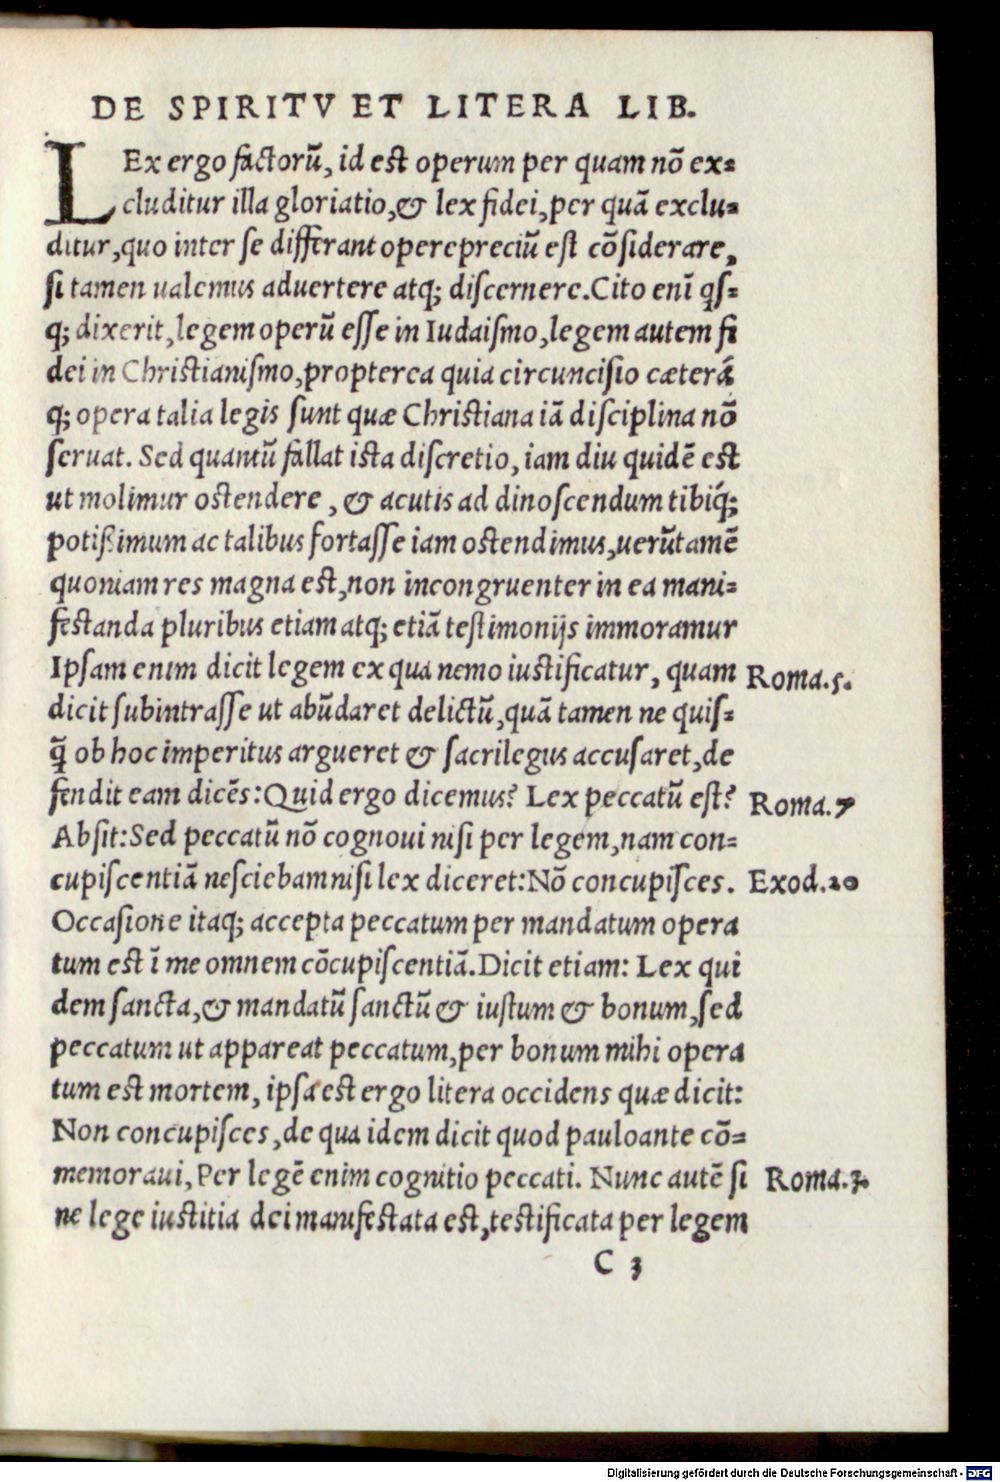 DE SPIRITV ET LITERA LIB.
LEx ergo factorũ, id est operum per quam nõ ex=
cluditur illa gloriatio,& lex fidei,per quã exclu=
ditur,quo inter se differant opereprecĩũ est cõsiderare,
si tamen ualemus aduertere atq; discernere.Cito enĩ qs=
q; dixerit,legem operũ esse in Iudaismo,legem autem fi
dei in Christianismo,propterea quia circuncisio cæterá
q; opera talia legis sunt quæ Christiana iã disciplina nõ
seruat. Sed quantũ fallat ista discretio, iam diu quidẽ est
ut molimur ostendere , & acutis ad dinoscendum tibiq́;
potißimum ac talibus fortasse iam ostendimus,uerũtamẽ
quoniam res magna est,non incongruenter in ea mani=
festanda pluribus etiam atq; etiã testimonijs immoramur
Ipsam enim dicit legem ex qua nemo iustificatur, quam Roma.5.
dicit subintrasse ut abũdaret delictũ,quã tamen ne quis=
q̃ ob hoc imperitus argueret & sacrilegus accusaret,de
fendit eam dicẽs:Quid ergo dicemus? Lex peccatũ est? Roma.7
Absit:Sed peccatũ nõ cognoui nisi per legem,nam con=
cupiscentiã nesciebam nisi lex diceret:Nõ concupisces. Exod.20
Occasione itaq; accepta peccatum per mandatum opera
tum est ĩ me omnem cõcupiscentiã.Dicit etiam: Lex qui
dem sancta,& mandatũ sanctũ & iustum & bonum,sed
peccatum ut appareat peccatum,per bonum mihi opera
tum est mortem, ipsa est ergo litera occidens quæ dicit:
Non concupisces,de qua idem dicit quod pauloante cõ=
memoraui,Per legẽ enim cognitio peccati. Nunc autẽ si Roma.3.
ne lege iustitia dei manifestata est,testificata per legem
C 3
Digitalisierung gefördert durch die Deutsche Forschungsgemeinschaft - DFG